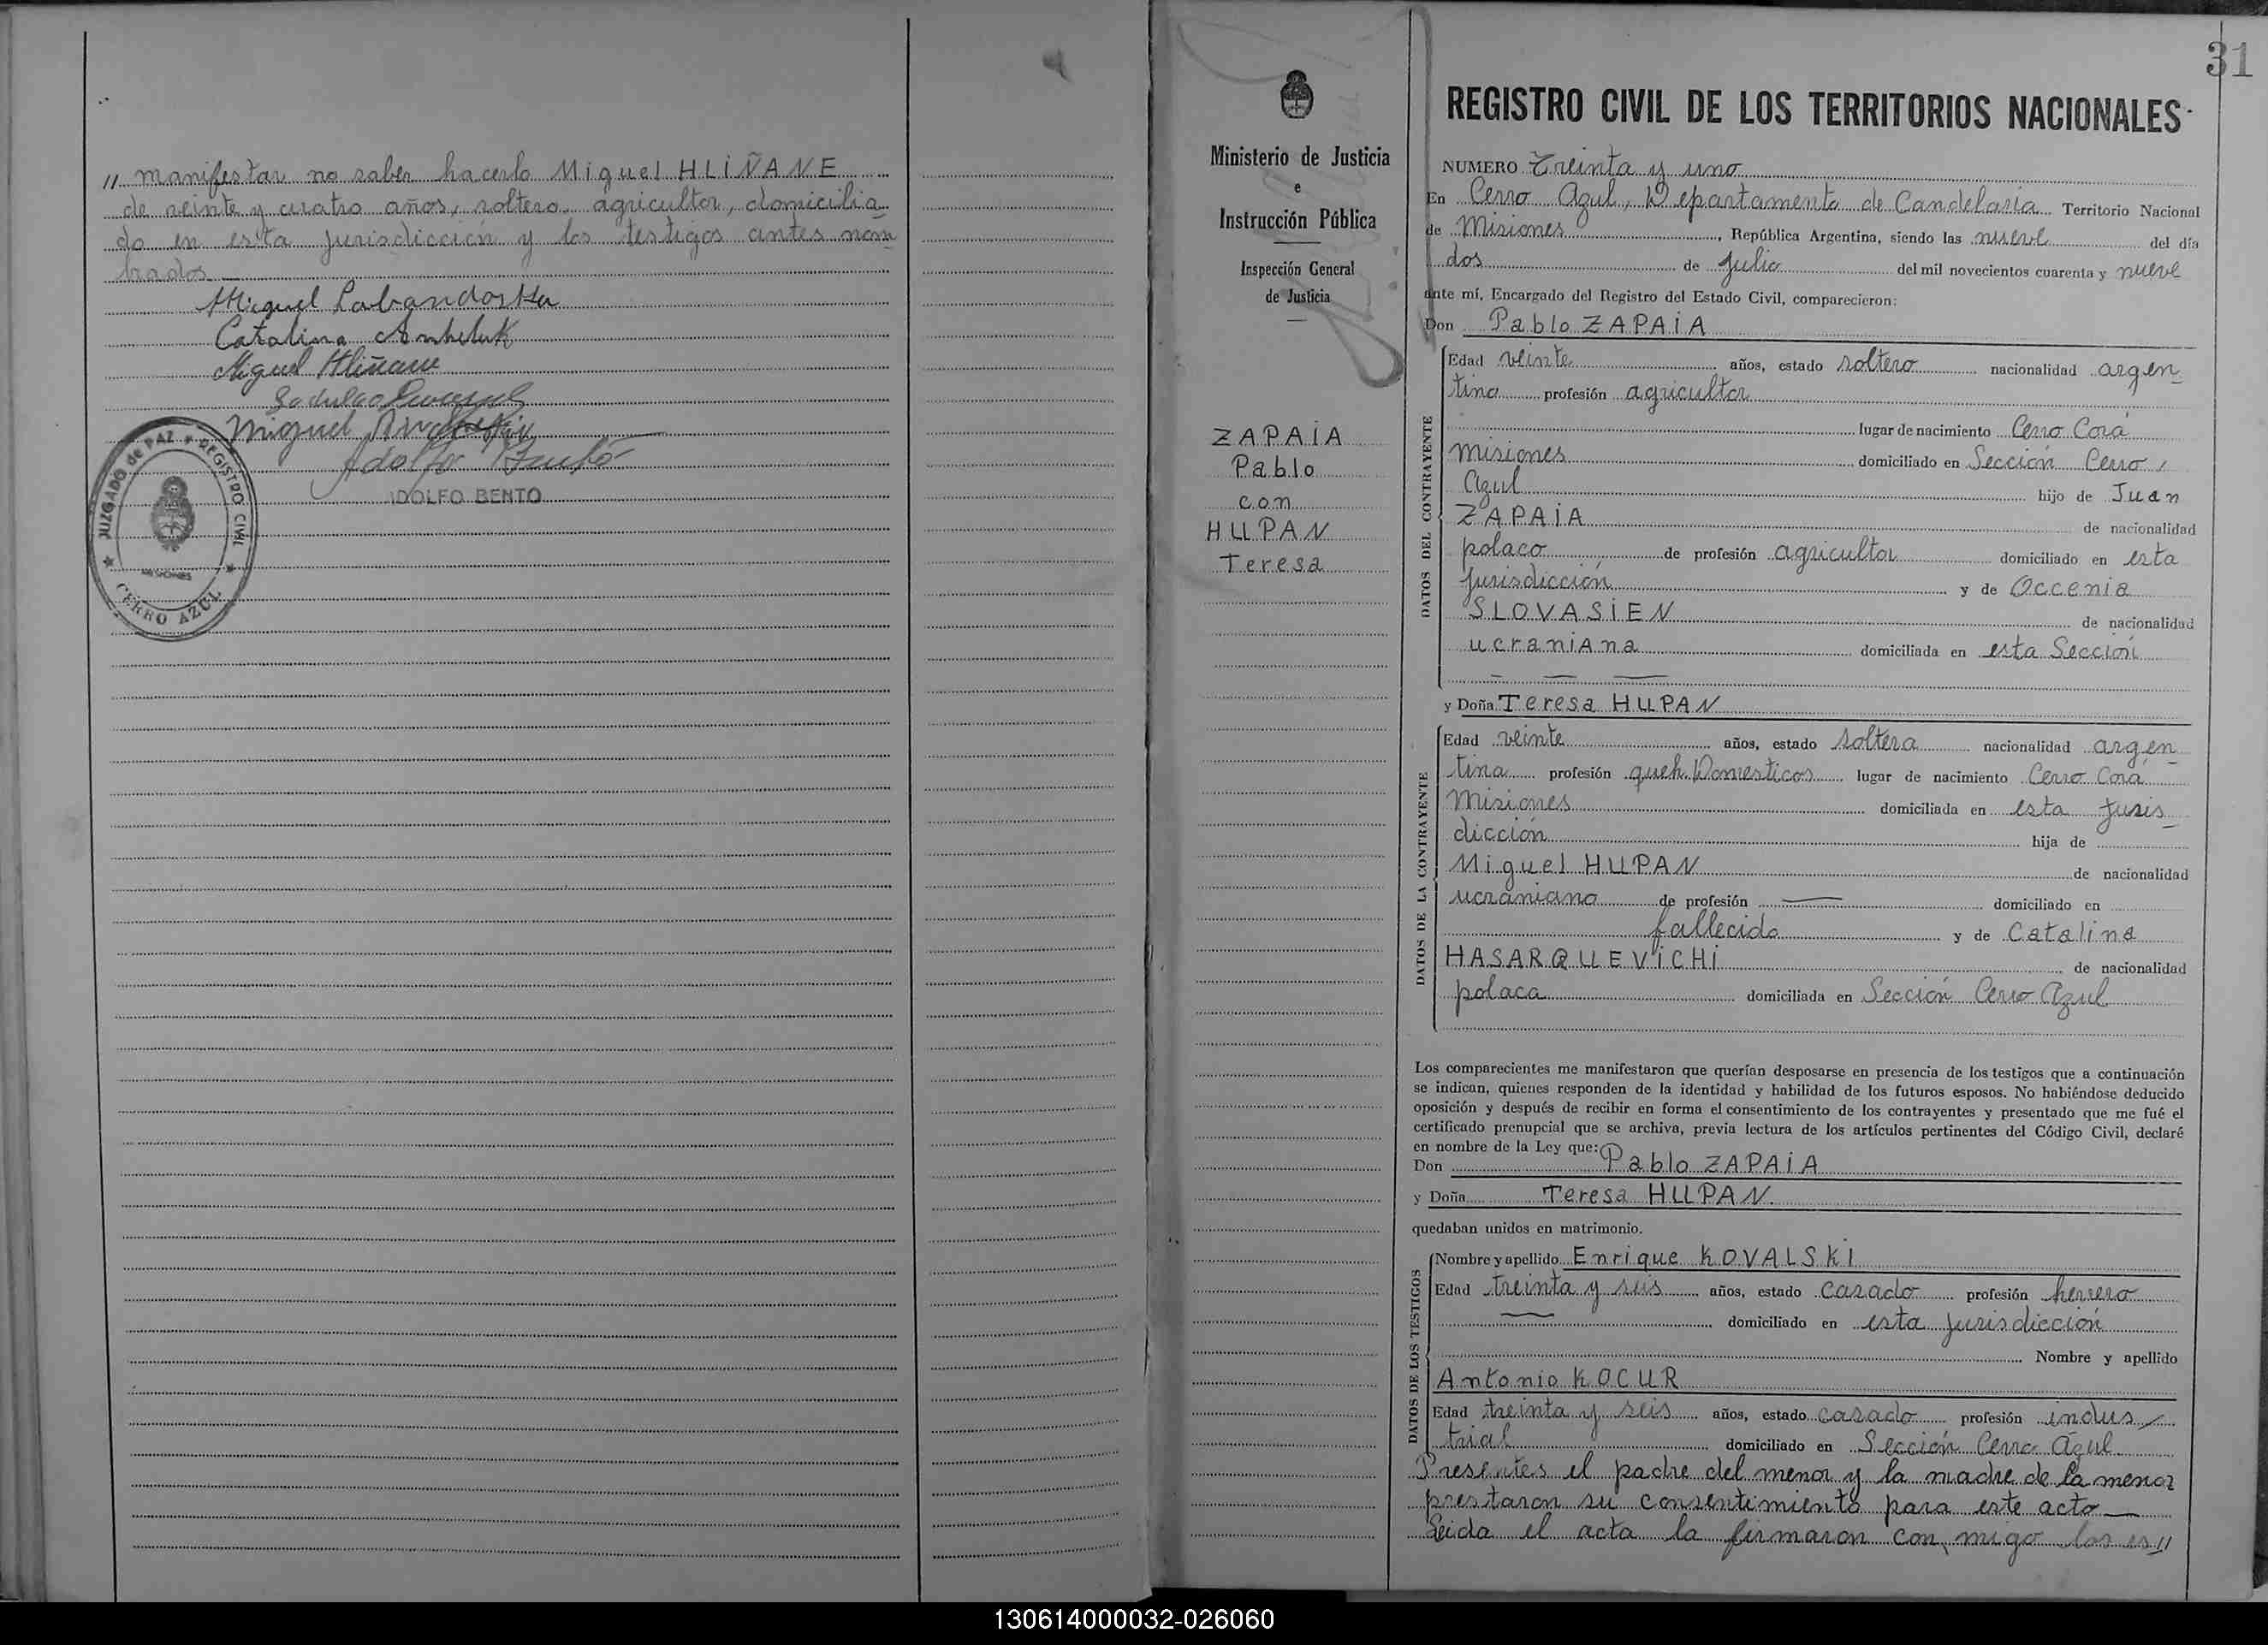 " manifestar no saber hacerlo Miguel HLIÑANE
de veinte y cuatro años, soltero, agricultor, domicilia-
do en esta jurisdicción y los testigos antes nom
brados
Miguel
Catalina
Miguel Hliñane
Miguel
Adolfo Bento
ADOLFO BENTO
JUZGADO de PAZ y REGISTRO CIVIL
MISIONES
CERRO AZUL
31
Ministerio de Justicia
e
Instrucción Pública
Inspección General
de Justicia
ZAPAIA
Pablo
con
HUPAN
Teresa
REGISTRO CIVIL DE LOS TERRITORIOS NACIONALES
NUMERO Treinta y uno
En Cerro Azul, Departamento de Candelaria Territorio Nacional
de Misiones, República Argentina, siendo las nueve del día
dos de Julio del mil novecientos cuarenta y nueve
ante mí, Encargado del Registro del Estado Civil, comparecieron:
Don Pablo ZAPAIA
DATOS DEL CONTRAYENTE
Edad veinte años, estado soltero nacionalidad argen-
tina profesión agricultor
lugar de nacimiento Cerro Corá
Misiones domiciliado en Sección Cerro
Azul hijo de Juan
ZAPAIA de nacionalidad
polaco de profesión agricultor domiciliado en esta
jurisdicción y de Occenia
SLOVASIEN de nacionalidad
ucraniana domiciliada en esta Sección
y Doña Teresa HUPAN
DATOS DE LA CONTRAYENTE
Edad veinte años, estado soltera nacionalidad argen-
tina profesión queh. Domesticos lugar de nacimiento Cerro Corá
Misiones domiciliada en esta juris-
dicción hija de
Miguel HUPAN de nacionalidad
ucraniano de profesión — domiciliado en
fallecido y de Catalina
HASARQUEVICHI de nacionalidad
polaca domiciliada en Sección Cerro Azul
Los comparecientes me manifestaron que querían desposarse en presencia de los testigos que a continuación
se indican, quienes responden de la identidad y habilidad de los futuros esposos. No habiéndose deducido
oposición y después de recibir en forma el consentimiento de los contrayentes y presentado que me fué el
certificado prenupcial que se archiva, previa lectura de los artículos pertinentes del Código Civil, declaré
en nombre de la Ley que:
Don Pablo ZAPAIA
y Doña Teresa HUPAN
quedaban unidos en matrimonio.
DATOS DE LOS TESTIGOS
Nombre y apellido Enrique KOVALSKI
Edad treinta y seis años, estado casado profesión herrero
— domiciliado en esta jurisdicción
Nombre y apellido
Antonio KOCUR
Edad treinta y seis años, estado casado profesión indus-
trial domiciliado en Sección Cerro Azul
Presentes el padre del menor y la madre de la menor
prestaron su consentimiento para este acto —
Leida el acta la firmaron con migo los es"
130614000032-026060